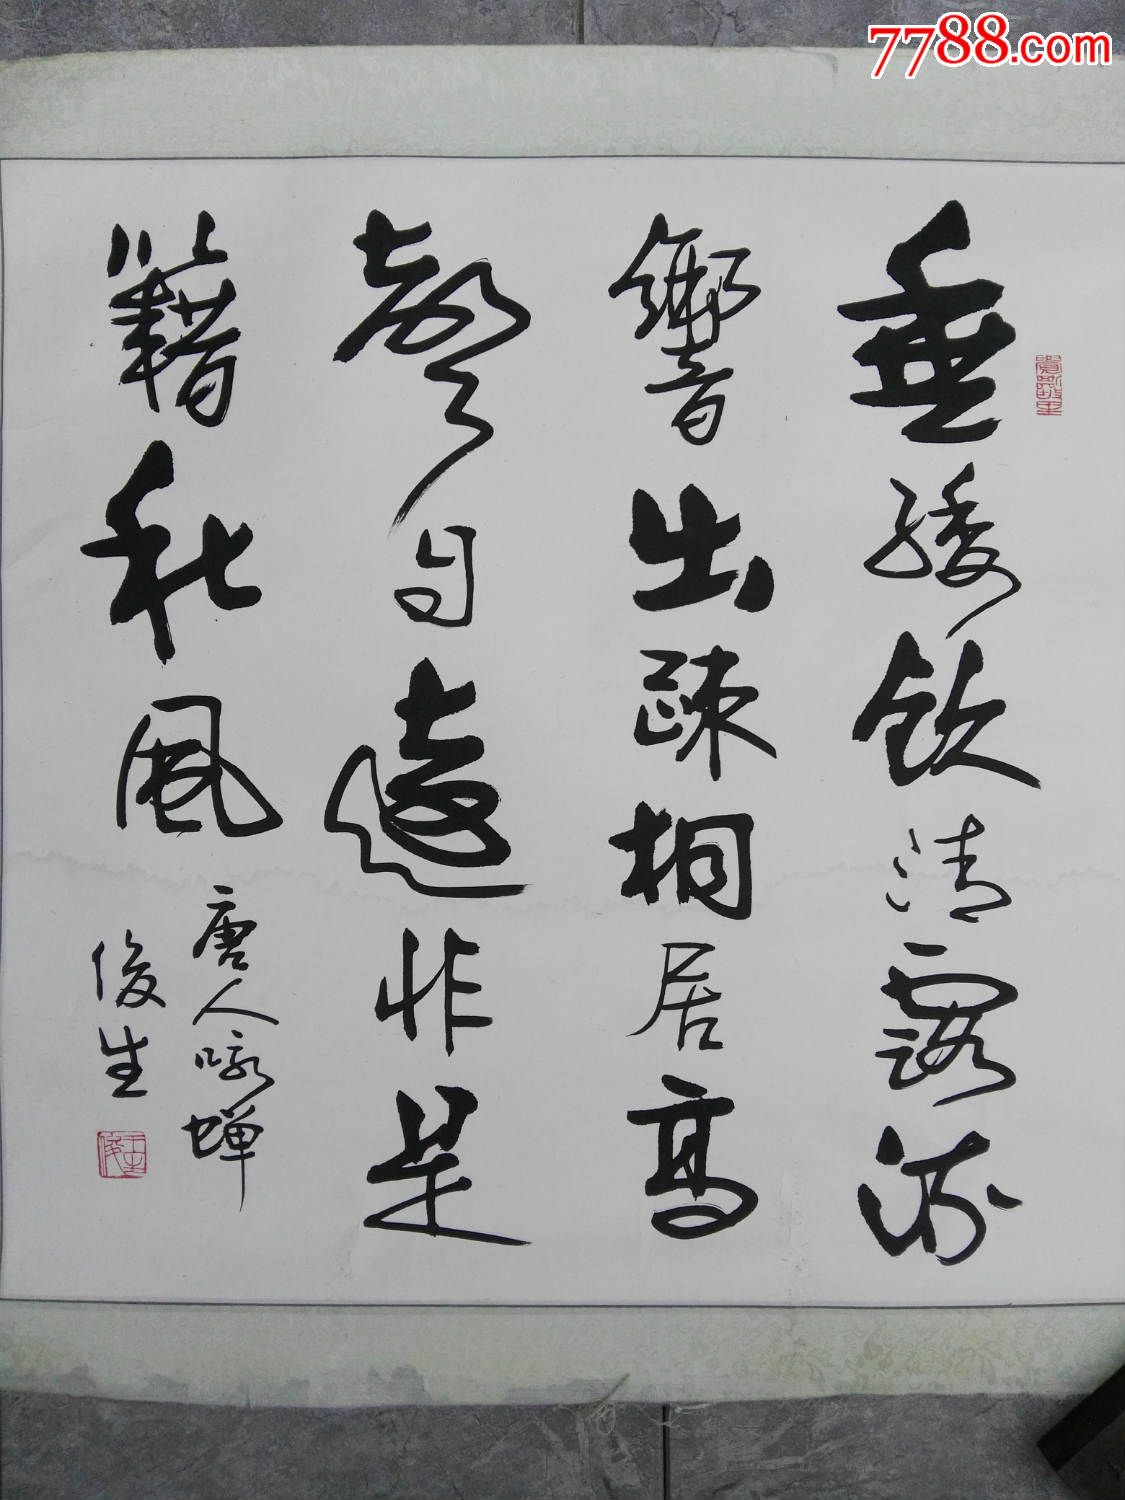 7788.com
垂緌飲清露流
響出疎桐居高
聲自遠非是
籍秋風
唐人咏蝉
俊生